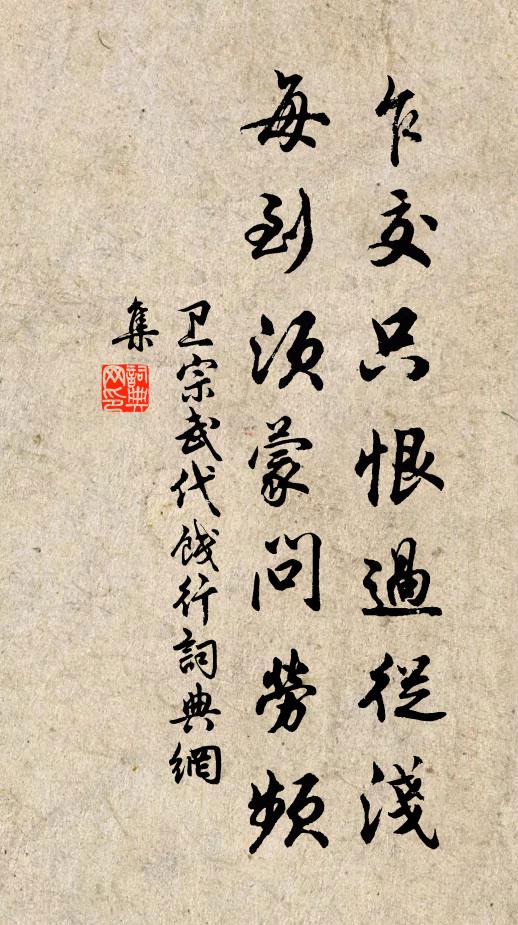 乍交只恨過從淺
每到須蒙問勞頻
卫宗武代餞行詞典網
集
詞典
网印